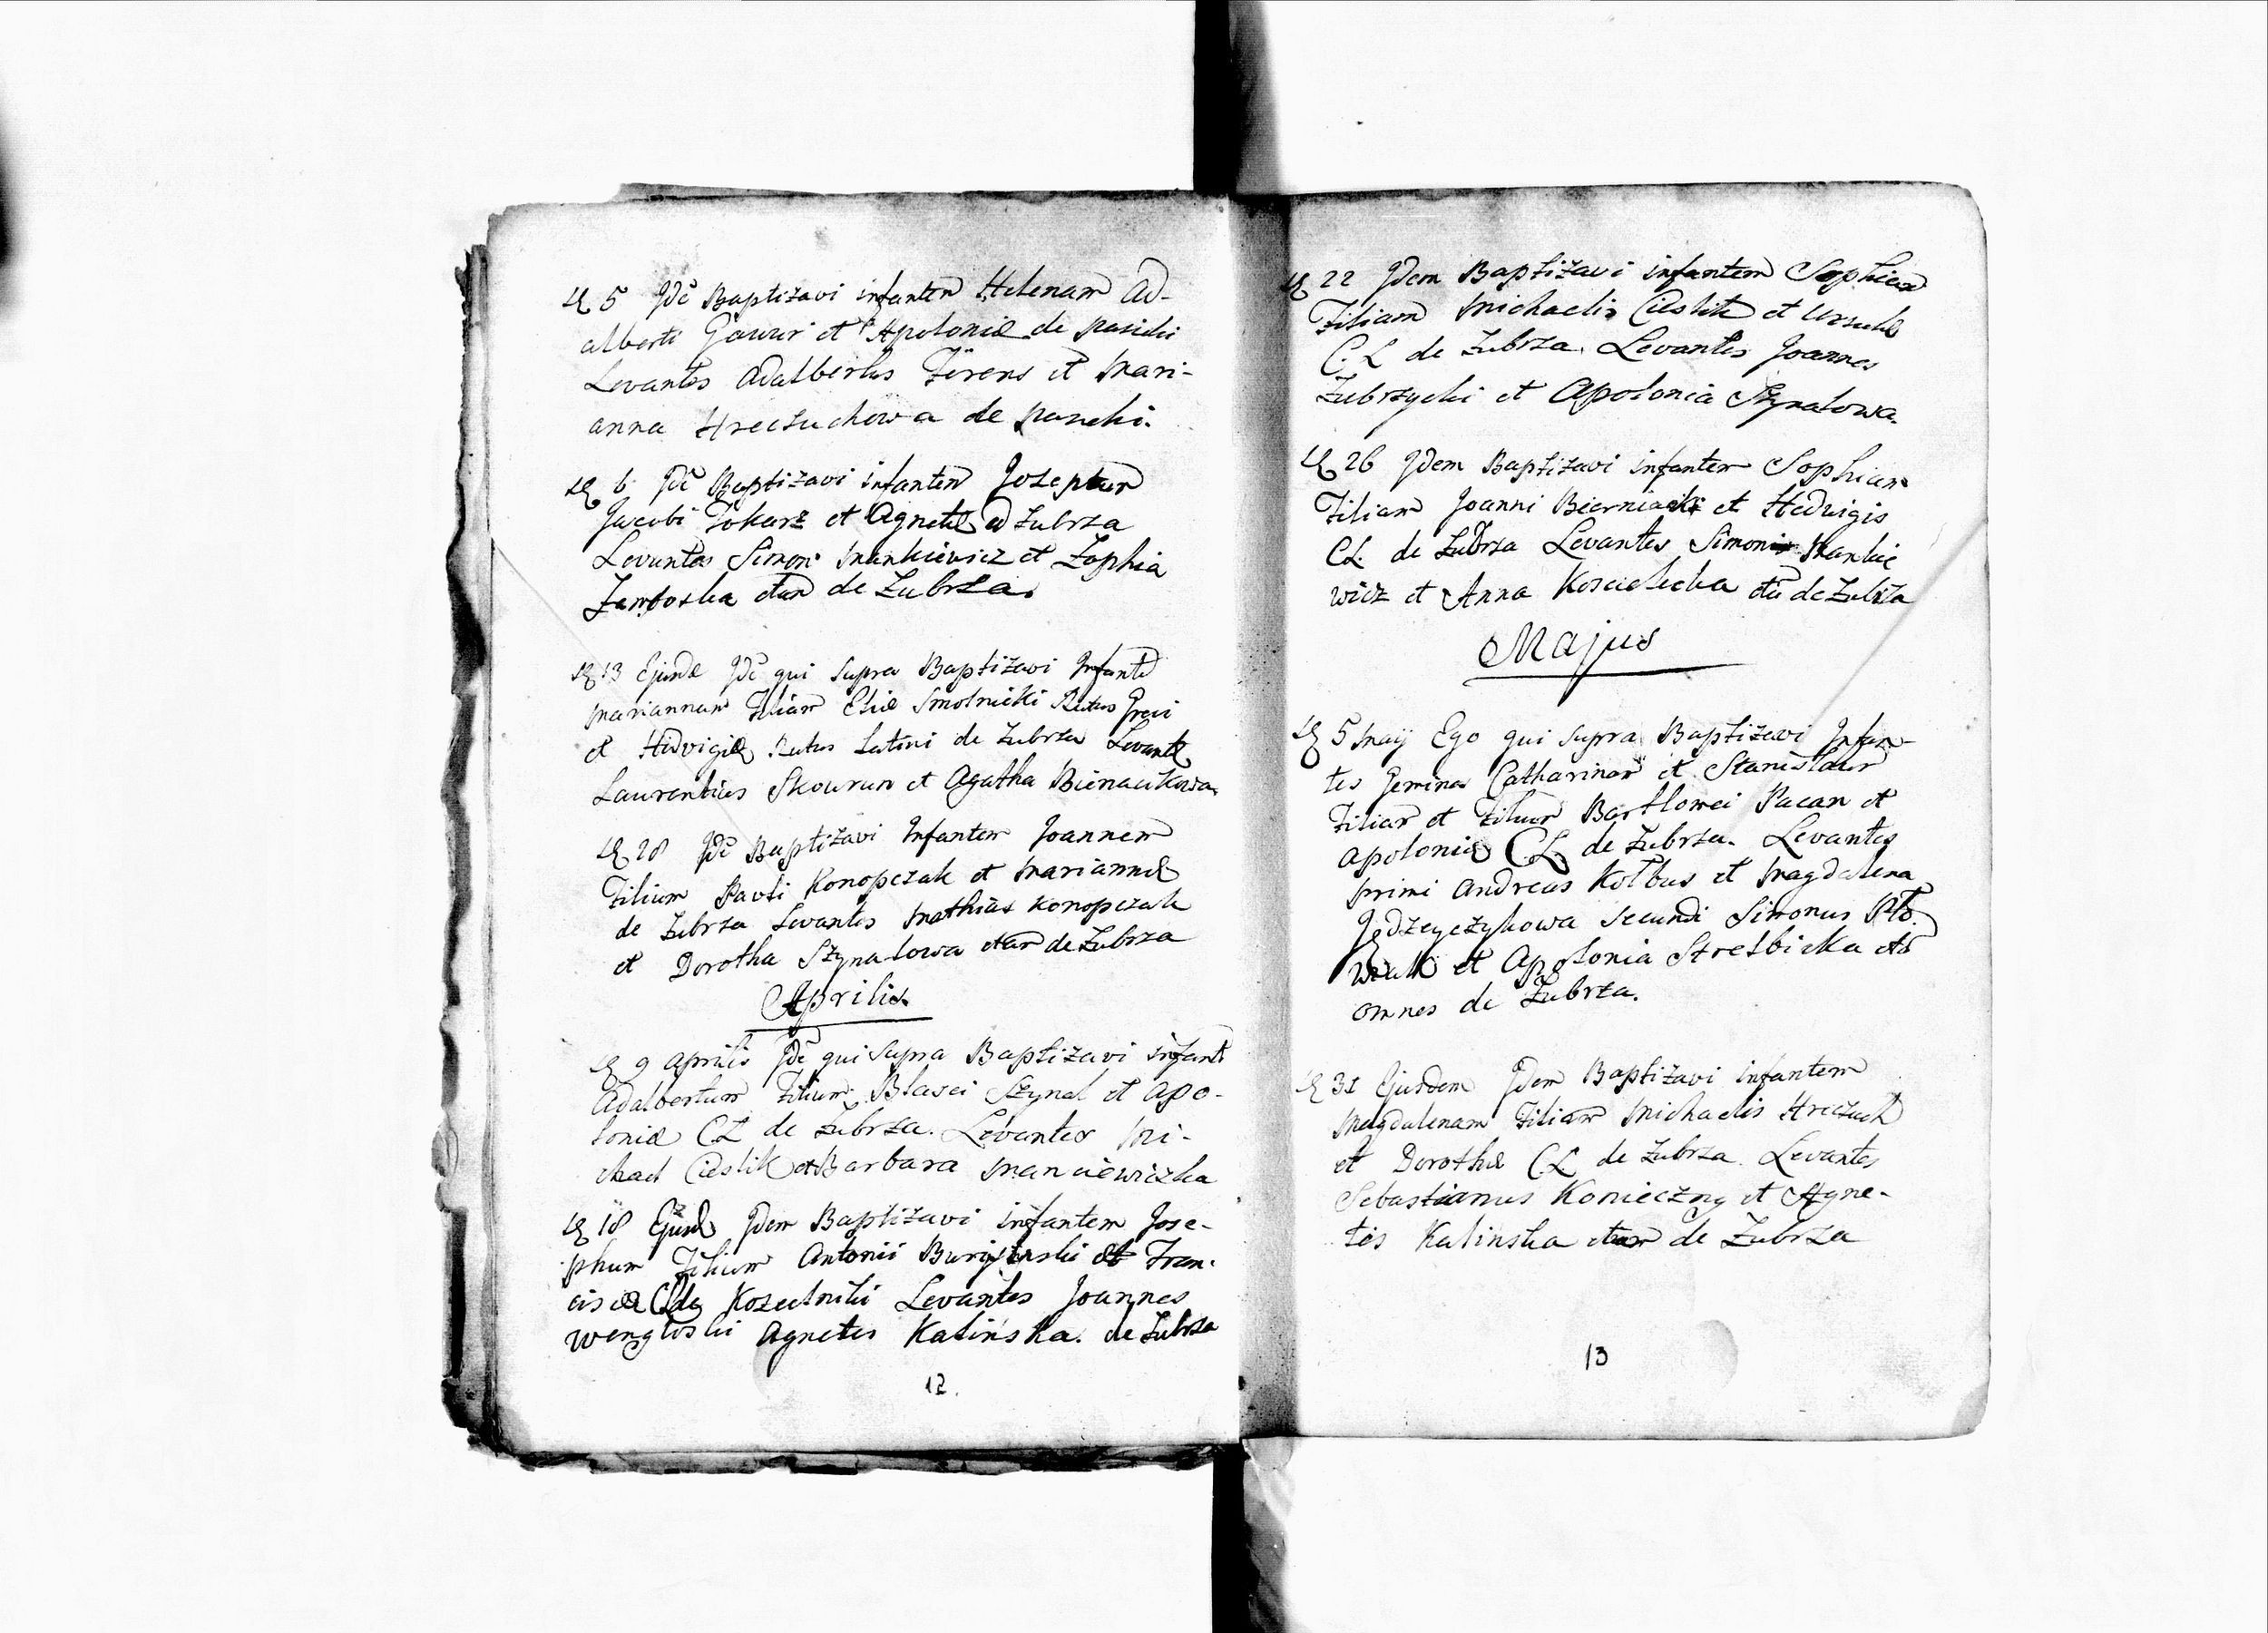 5 Idē Baptizavi infantem Helenam Ad-
alberti Gawur et Apoloniæ de
Levantes Adalbertus et Mari-
anna Hreczuchowa de
6 Idē Baptizavi infantem Josephum
Jacobi Tokarz et Agnetæ Zubrza
Levantes Simon Mankiewicz et Zophia
de Zubrza.
13 Ejusdē Idē qui supra Baptizavi Infantē
Mariannam Filiam Eliæ Smolnicki Ritus Greci
et Hedvigis Ritus Latini de Zubrza Levantes
Laurentius Skowrun et Agatha
28 Idē Baptizavi Infantem Joannem
Filium Pavli Konopczak et Mariannæ
de Zubrza Levantes Mathias Konopczak
et Dorotha Szynalowa de Zubrza
Aprilis
9 Aprilis Idē qui supra Baptizavi infantē
Adalbertum Filium Blasei Szynal et Apo-
loniæ CL de Zubrza. Levantes Mi-
chael Cieslik et Barbara Manciewiczka
18 Ejusdē Idem Baptizavi infantem Jose-
phum Filium Antonii et Fran-
ciscæ Kozielniki Levantes Joannes
Agnetes Kalinska. de Zubrza
12.
22 Idem Baptizavi infantem Sophiam
Filiam Michaelis Cieslik et Ursulæ
C.L de Zubrza. Levantes Joannes
Zubrzycki et Apolonia Szynalowa.
26 Idem Baptizavi infantem Sophiam
Filiam Joanni Bierniacki et Hedvigis
CL. de Zubrza Levantes Simon Mankie
wicz et Anna Koscielecka de Zubrza
Majus
5 Maij Ego qui supra Baptizavi Infan-
tes Geminos Catharinam et Stanislaum
Filiam et Filium Bartlomei Pacan et
Apoloniæ CL. de Zubrza. Levantes
primi Andreas Kolbus et Magdalena
Jędzeyczykowa secundi Simonus
et Apolonia Strelbicka
omnes de Zubrza.
31 Ejusdem Idem Baptizavi infantem
Magdalenam Filiam Michaelis Hreczuch
et Dorothæ CL de Zubrza. Levantes
Sebastianus Konieczny et Agne-
tes Kalinska de Zubrza
13